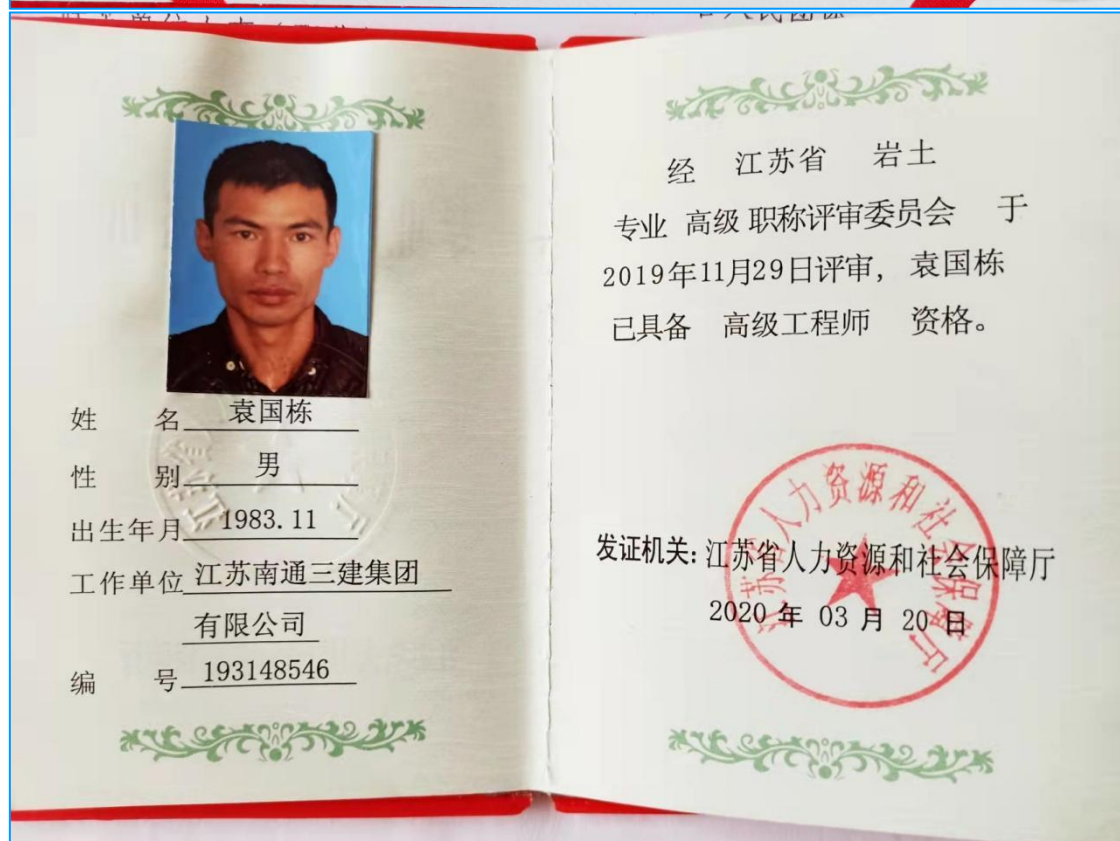 姓 名 袁国栋
性 别 男
出生年月 1983.11
工作单位 江苏南通三建集团
有限公司
编 号 193148546
经 江苏省 岩土
专业 高级 职称评审委员会 于
2019年11月29日评审, 袁国栋
已具备 高级工程师 资格。
发证机关: 江苏省人力资源和社会保障厅
2020 年 03 月 20 日
江苏省人力资源和社会保障厅